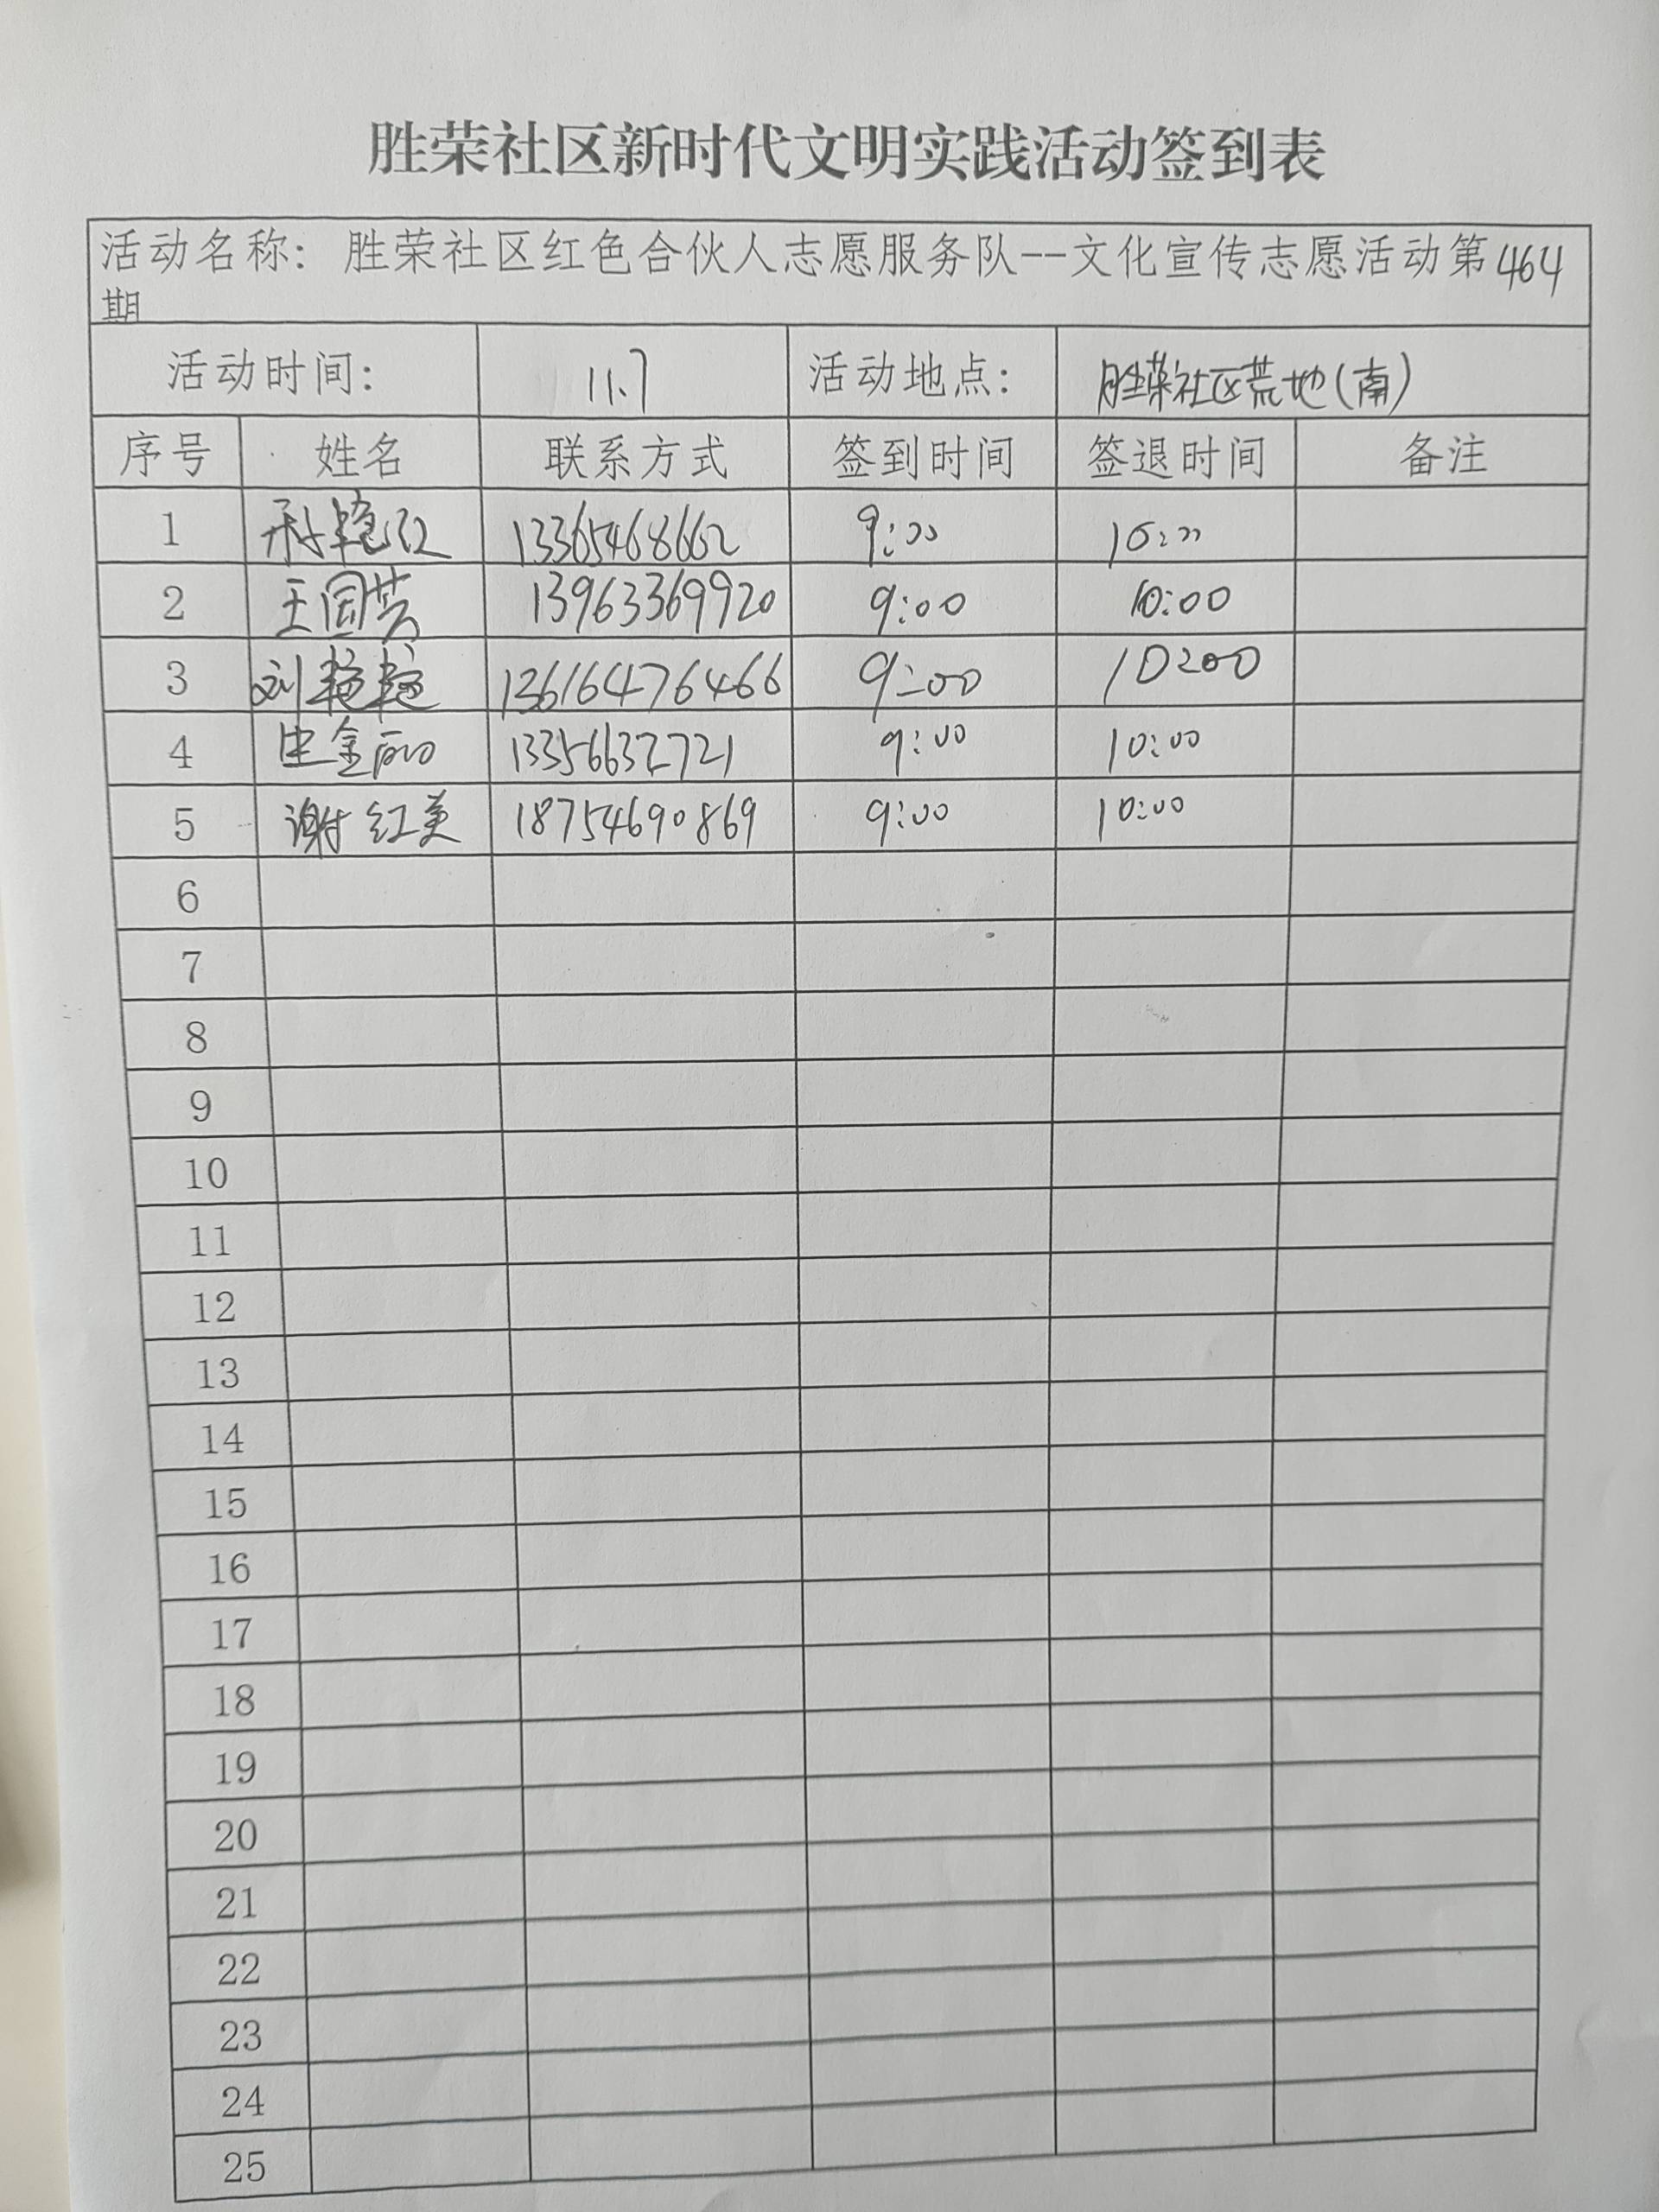 胜荣社区新时代文明实践活动签到表
活动名称：胜荣社区红色合伙人志愿服务队--文化宣传志愿活动第464
期
活动时间： 11.7 活动地点： 胜荣社区荒地(南)
序号 姓名 联系方式 签到时间 签退时间 备注
1 13365468662 9:00 10:00
2 王国芳 13963369920 9:00 10:00
3 刘艳艳 13616476466 9:00 10:00
4 13356632721 9:00 10:00
5 谢红美 18754690869 9:00 10:00
6
7
8
9
10
11
12
13
14
15
16
17
18
19
20
21
22
23
24
25